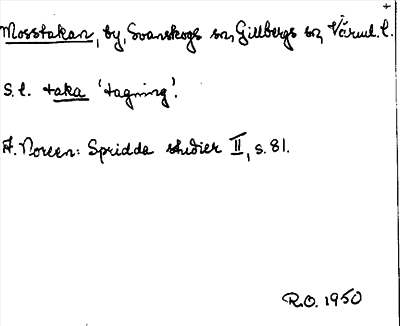 Mosstakan, by, Svanskogs sn, Gillbergs hd, Värml. l.
S. l. taka 'tagning'.
A. Noreen: Spridda studier II, s. 81.
R.O. 1950